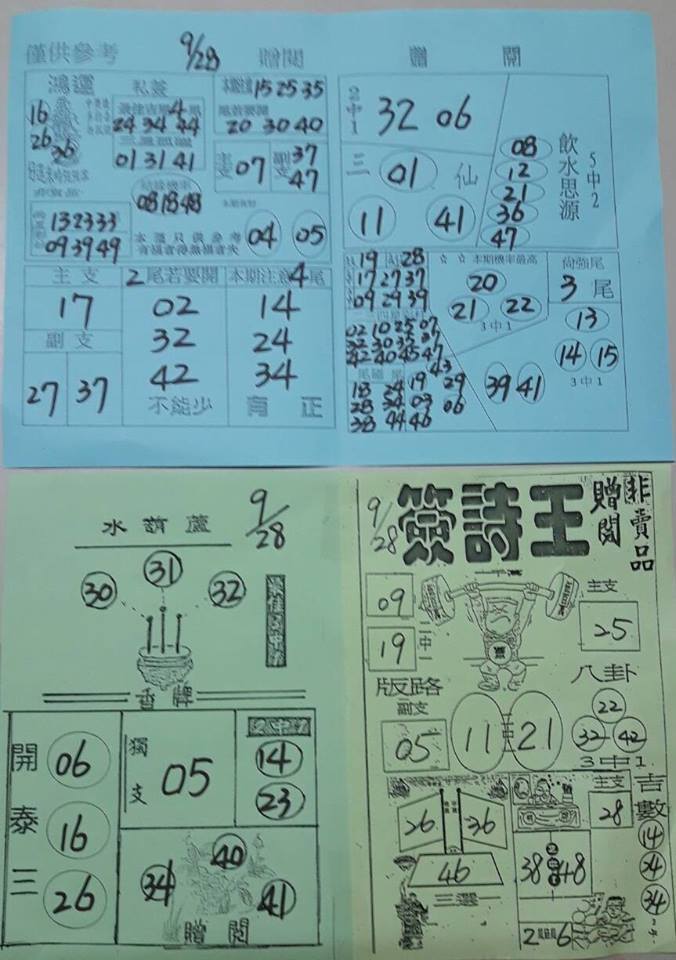 僅供參考 9/28 贈閱
鴻運
16
26
36
私簽
4尾
24 34 44
01 31 41
08 18 48
15 25 35
尾若要開
20 30 40
主支 07 副支 37 47
13 23 33
09 39 49
本簽只供參考
有福者得無福者失
04 05
主支
17
副支
27 37
2尾若要開
02
32
42
不能少
本期注意4尾
14
24
34
有正
贈閱
2中1
32 06
三仙
01
11 41
飲水思源
5中2
08
12
21
36
47
19 28
17 27 37
09 29 39
二三四星彩柱
02 10 25 07
32 30 35 37
42 40 45 47
43
18 24 19 29
28 34 03 06
38 44 46
☆☆本期機率最高
20
21 22
3中1
39 41
尚強尾
3尾
13
14 15
3中1
水葫蘆
9/28
30 31 32
香牌
開泰三
06
16
26
獨支
05
14
23
34 40 41
贈閱
9/28
簽詩王
贈閱
非賣品
09
19
二中一
主支
25
版路
副支
05
11 三中一 21
八卦
22
32 42
3中1
26 36
46
三選
主支
28
38 48
2 6
吉數
14
24
34